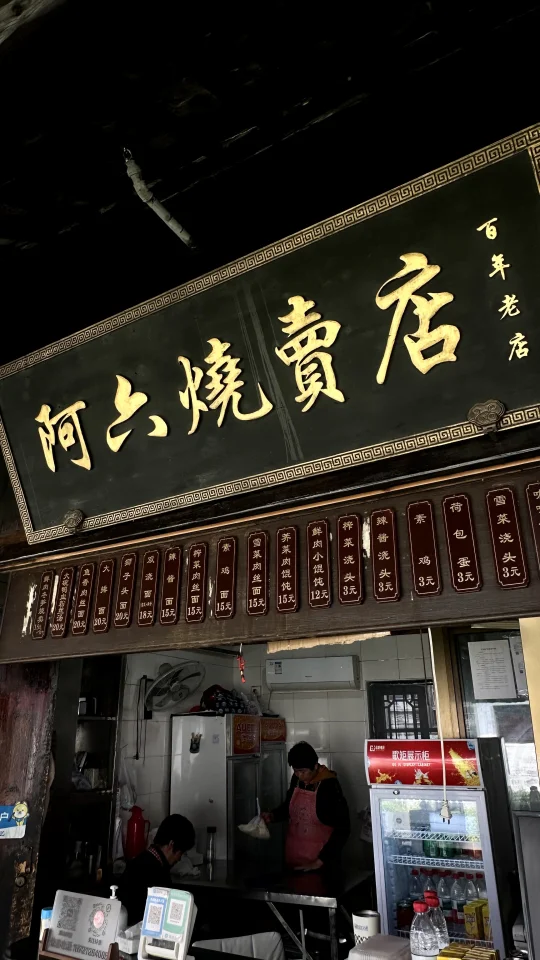 阿六燒賣店
百年老店
鱼香肉丝面 20元
大排面 20元
狮子头面 20元
双浇面 18元
辣酱面 15元
榨菜肉丝面 15元
素鸡面 15元
雪菜肉丝面 15元
荠菜肉馄饨 15元
鲜肉小馄饨 12元
榨菜浇头 3元
辣酱浇头 3元
素鸡 3元
荷包蛋 3元
雪菜浇头 3元
展示柜